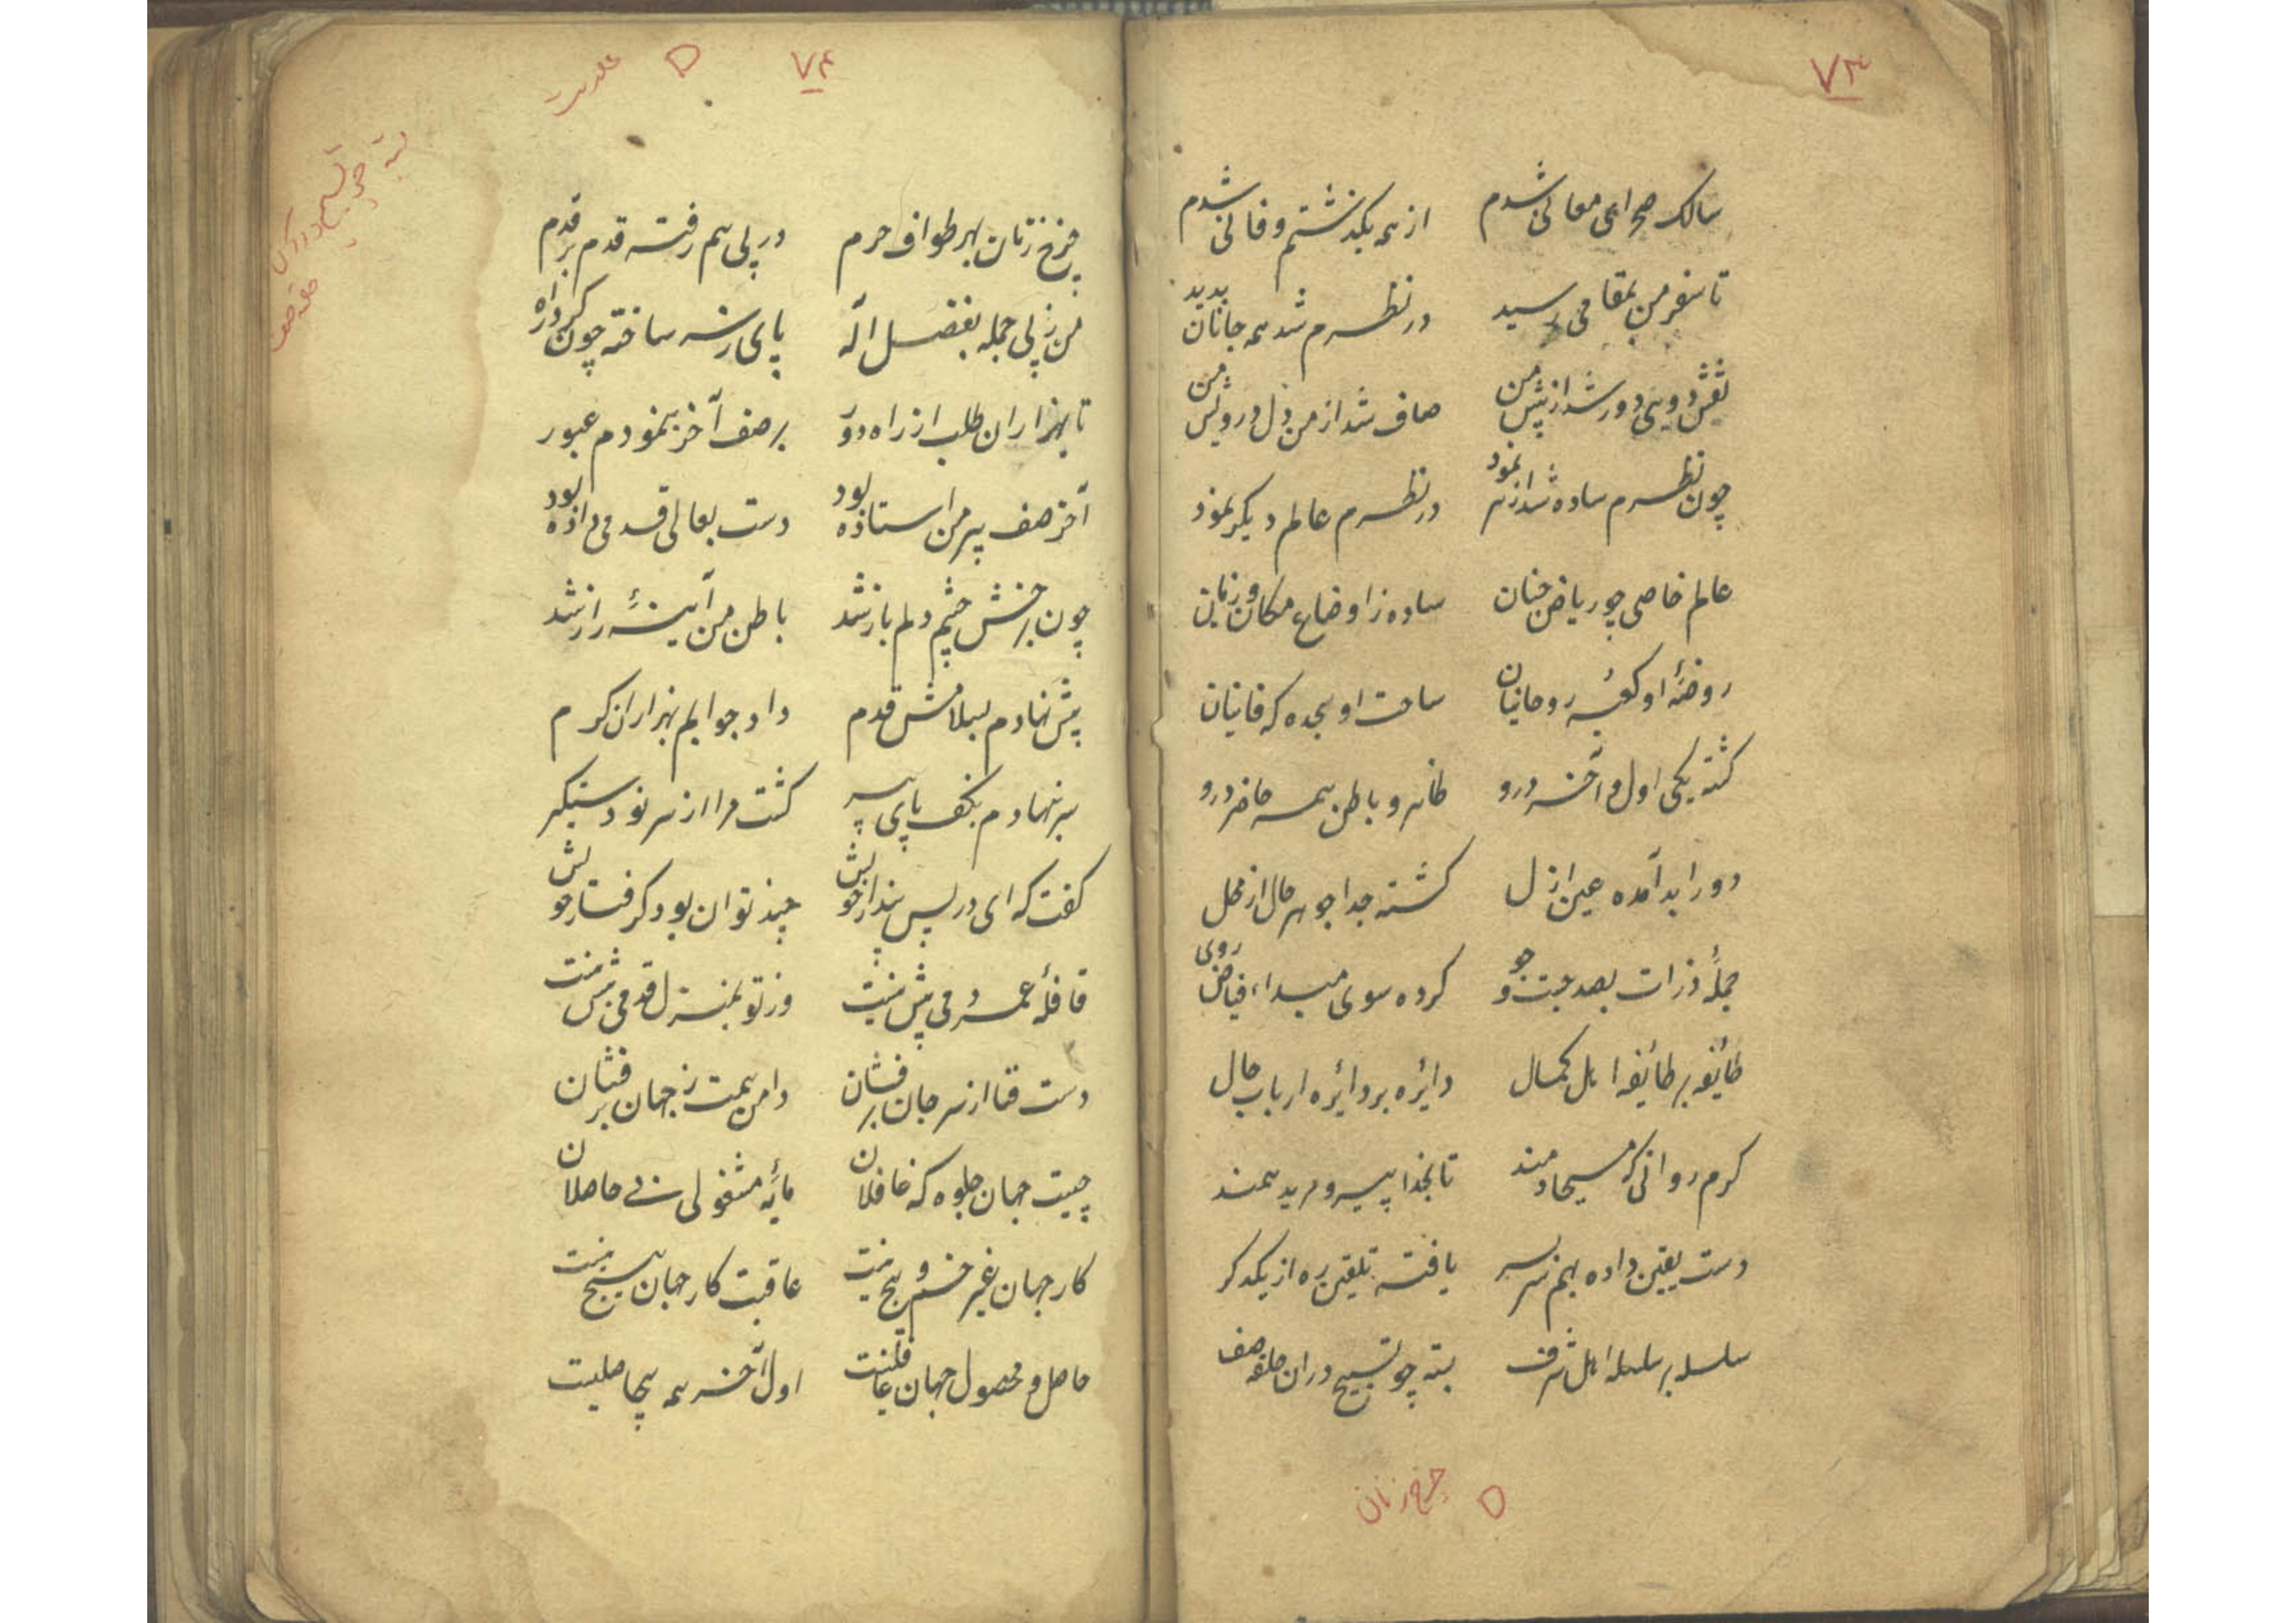 ۷۳
سالک صحرای معانی شدم از همه بگذشتم و فانی شدم
تا سفر من بمقامی رسید در نظرم شد همه جانان پدید
نقش دویی دور شد از پیش من صاف شد از من دل درویش من
چون نظرم ساده شد از هر نمود در نظرم عالم دیگر نمود
عالم خاصی چو ریاض جنان ساده ز اوضاع مکان و زمان
روضهٔ او کعبهٔ روحانیان ساحت او سجده که فانیان
کشته یکی اول و آخر درو ظاهر و باطن همه حاضر درو
دور ابد آمده عین ازل کشته جدا جوهر حال از محل
جملهٔ ذرات بصد جست و جو کرده سوی مبداء فیاض روی
طائفه بر طائفه اهل کمال دائره بر دائره ارباب حال
کرم روانی که مسیحا دمند تا بخدا پیر و مرید همند
دست یقین داده بهم سر بسر یافته تلقین ره از یکدکر
سلسله بر سلسله اهل شرف بسته چو تسبیح در آن حلقه صف
چرخ زنان
۷۴
بسته چو تسبیح در آن
حلقه صف
چرخ زنان بهر طواف حرم در پی هم رفته قدم بر قدم
من ز پی جمله بفضل اله پای ز سر ساخته چون کرد راه
تا بهزاران طلب از راه دور بر صف آخر بنمودم عبور
آخر صف پیر من استاده بود دست بعالی قدمی داده بود
چون برخش چشم دلم باز شد باطن من آینهٔ راز شد
پیش نهادم بسلامش قدم داد جوابم بهزاران کرم
سر بنهادم بکف پای پیر کشت مرا از سر نو دستکیر
کفت که ای در پس پندار خویش چند توان بود کرفتار خویش
قافلهٔ عمر دمی بیش نیست وز تو بمنزل قدمی بیش نیست
دست فنا از سر جان برفشان دامن همت ز جهان برفشان
چیست جهان جلوه که غافلان مایهٔ مشغولی بی حاصلان
کار جهان غیر خم و پیچ نیست عاقبت کار جهان هیچ نیست
حاصل و محصول جهان غافلیست اول و آخر همه بیحاصلیست